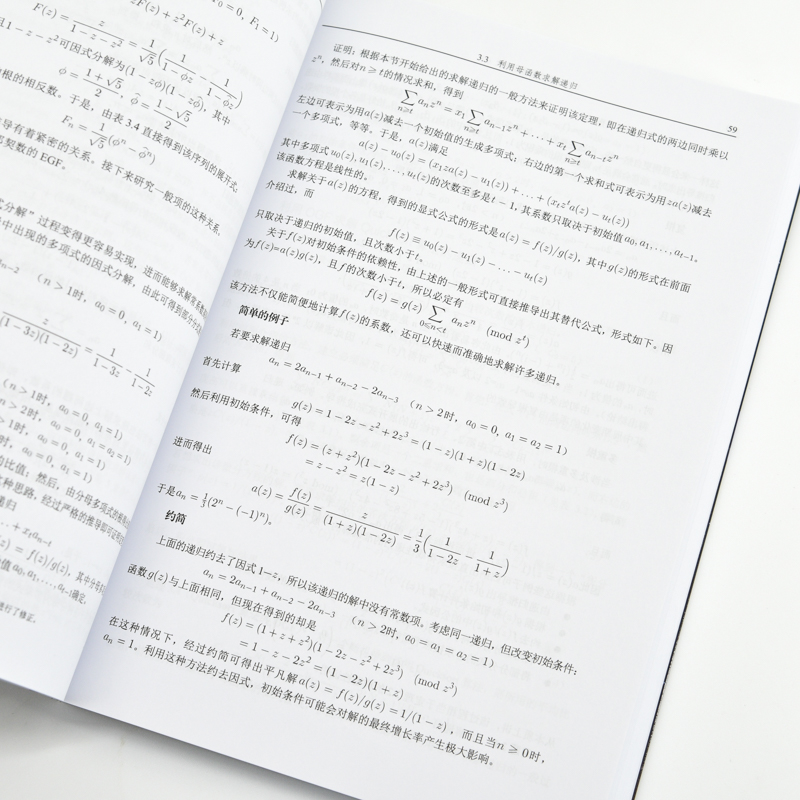 z²F(z)+z
x₀=0, F₁=1)
F(z)=z/(1-z-z²)=1/√5(1/(1-φz)-1/(1-φ̂z))
1-z-z²可因式分解为(1-zφ)(1-zφ̂), 其中
φ=(1+√5)/2, φ̂=(1-√5)/2
根的相反数。于是，由表3.4直接得到该序列的展开式：
Fₙ=1/√5(φⁿ-φ̂ⁿ)
有着紧密的关系。接下来研究一般项的这种关系，
契数的EGF。
式分解"过程变得更容易实现，进而能够求解常系数
中出现的多项式的因式分解，由此可得到部分分
(n>1时, a₀=0, a₁=1)
z/((1-3z)(1-2z))=1/(1-3z)-1/(1-2z)
(n>1时, a₀=0, a₁=1)
n>2时, a₀=0, a₁=a₂=1)
n>1时, a₀=0, a₁=1)
时, a₀=0, a₁=1)
的比值；然后，由分母多项式的
种思路，经过严格的推导即可证明
递归
…+xₜaₙ₋ₜ
(z)=f(z)/g(z), 其中分母
值a₀,a₁,…,aₜ₋₁确定：
进行了修正。
3.3 利用母函数求解递归 59
证明：根据本节开始给出的求解递归的一般方法来证明该定理，即在递归式的两边同时乘以
zⁿ，然后对n≥t的情况求和，得到
∑_{n≥t} aₙzⁿ=x₁∑_{n≥t} aₙ₋₁zⁿ+…+xₜ∑_{n≥t} aₙ₋ₜzⁿ
左边可表示为用a(z)减去一个初始值的生成多项式；右边的第一个求和式可表示为用za(z)减去
一个多项式，等等。于是，a(z)满足
a(z)-u₀(z)=(x₁za(z)-u₁(z))+…+(xₜzᵗa(z)-uₜ(z))
其中多项式u₀(z),u₁(z),…,uₜ(z)的次数至多是t-1，其系数只取决于初始值a₀,a₁,…,aₜ₋₁。
该函数方程是线性的。
求解关于a(z)的方程，得到的显式公式的形式是a(z)=f(z)/g(z)，其中g(z)的形式在前面
介绍过，而
f(z)≡u₀(z)-u₁(z)-…-uₜ(z)
只取决于递归的初始值，且次数小于t。
关于f(z)对初始条件的依赖性，由上述的一般形式可直接推导出其替代公式，形式如下。因
为f(z)=a(z)g(z)，且f的次数小于t，所以必定有
f(z)=g(z)∑_{0≤n<t} aₙzⁿ (mod zᵗ)
该方法不仅能简便地计算f(z)的系数，还可以快速而准确地求解许多递归。
简单的例子
若要求解递归
aₙ=2aₙ₋₁+aₙ₋₂-2aₙ₋₃ (n>2时, a₀=0, a₁=a₂=1)
首先计算
g(z)=1-2z-z²+2z³=(1-z)(1+z)(1-2z)
然后利用初始条件，可得
f(z)=(z+z²)(1-2z-z²+2z³) (mod z³)
=z-z²=z(1-z)
进而得出
a(z)=f(z)/g(z)=z/((1+z)(1-2z))=1/3(1/(1-2z)-1/(1+z))
于是aₙ=1/3(2ⁿ-(-1)ⁿ)。
约简
上面的递归约去了因式1-z，所以该递归的解中没有常数项。考虑同一递归，但改变初始条件：
aₙ=2aₙ₋₁+aₙ₋₂-2aₙ₋₃ (n>2时, a₀=a₁=a₂=1)
函数g(z)与上面相同，但现在得到的却是
f(z)=(1+z+z²)(1-2z-z²+2z³) (mod z³)
=1-z-2z²=(1-2z)(1+z)
在这种情况下，经过约简可得出平凡解a(z)=f(z)/g(z)=1/(1-z)，而且当n≥0时，
aₙ=1。利用这种方法约去因式，初始条件可能会对解的最终增长率产生极大影响。